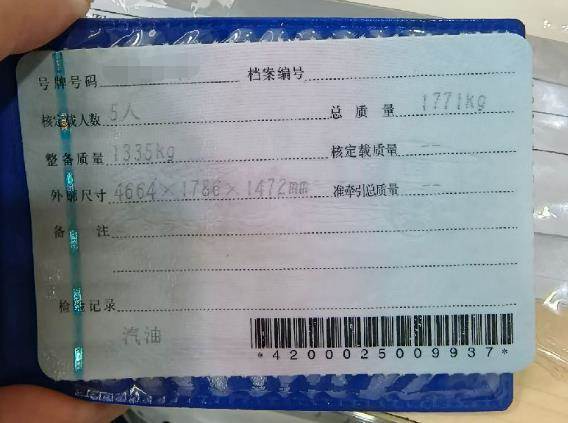 号牌号码 档案编号
核定载人数 5人 总质量 1771kg
整备质量 1335kg 核定载质量 --
外廓尺寸 4664×1786×1472mm 准牵引总质量 --
备注
检验记录
汽油
*4200025009937*